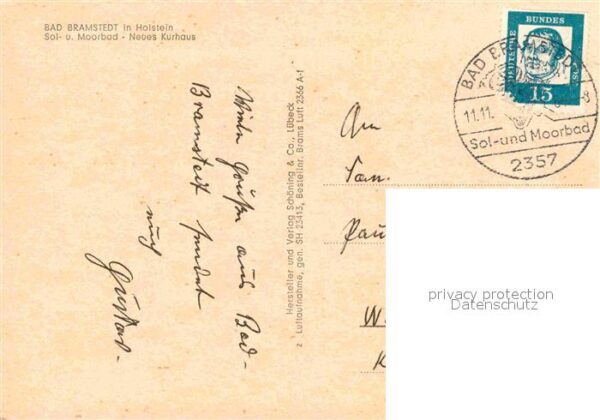 BAD BRAMSTEDT in Holstein
Sol- u. Moorbad - Neues Kurhaus
Viele Grüße aus Bad-
Bramstedt sendet
euch
Gustav-
Hersteller und Verlag Schöning & Co., Lübeck
z Luftaufnahme, gen. SH 23413, Bestellnr. Brams Luft 2366 A-f
DEUTSCHE BUNDESPOST
15
BAD BRAMSTEDT
11.11.
Sol- und Moorbad
2357
An
Fam.
Pau
W
K
privacy protection
Datenschutz